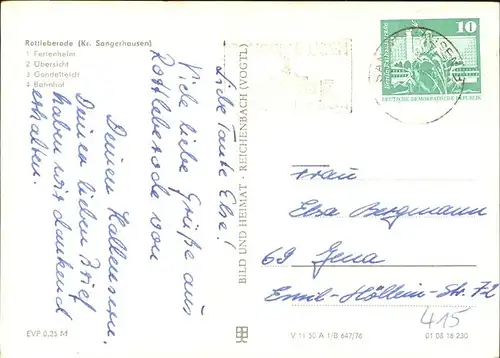 Rottleberode (Kr. Sangerhausen)
1 Ferienheim
2 Übersicht
3 Gondelteich
4 Bahnhof
Liebe Tante Else!
Viele liebe Grüße aus
Rottleberode von
Deinen
Deinen lieben Brief
haben wir dankend
erhalten.
EVP 0,25 M
BILD UND HEIMAT · REICHENBACH (VOGTL)
V 11 50 A 1/B 647/76
01 08 16 230
10
DEUTSCHE DEMOKRATISCHE REPUBLIK
Frau
Elsa Bergmann
69 Jena
Emil-Höllein-Str. 72
415